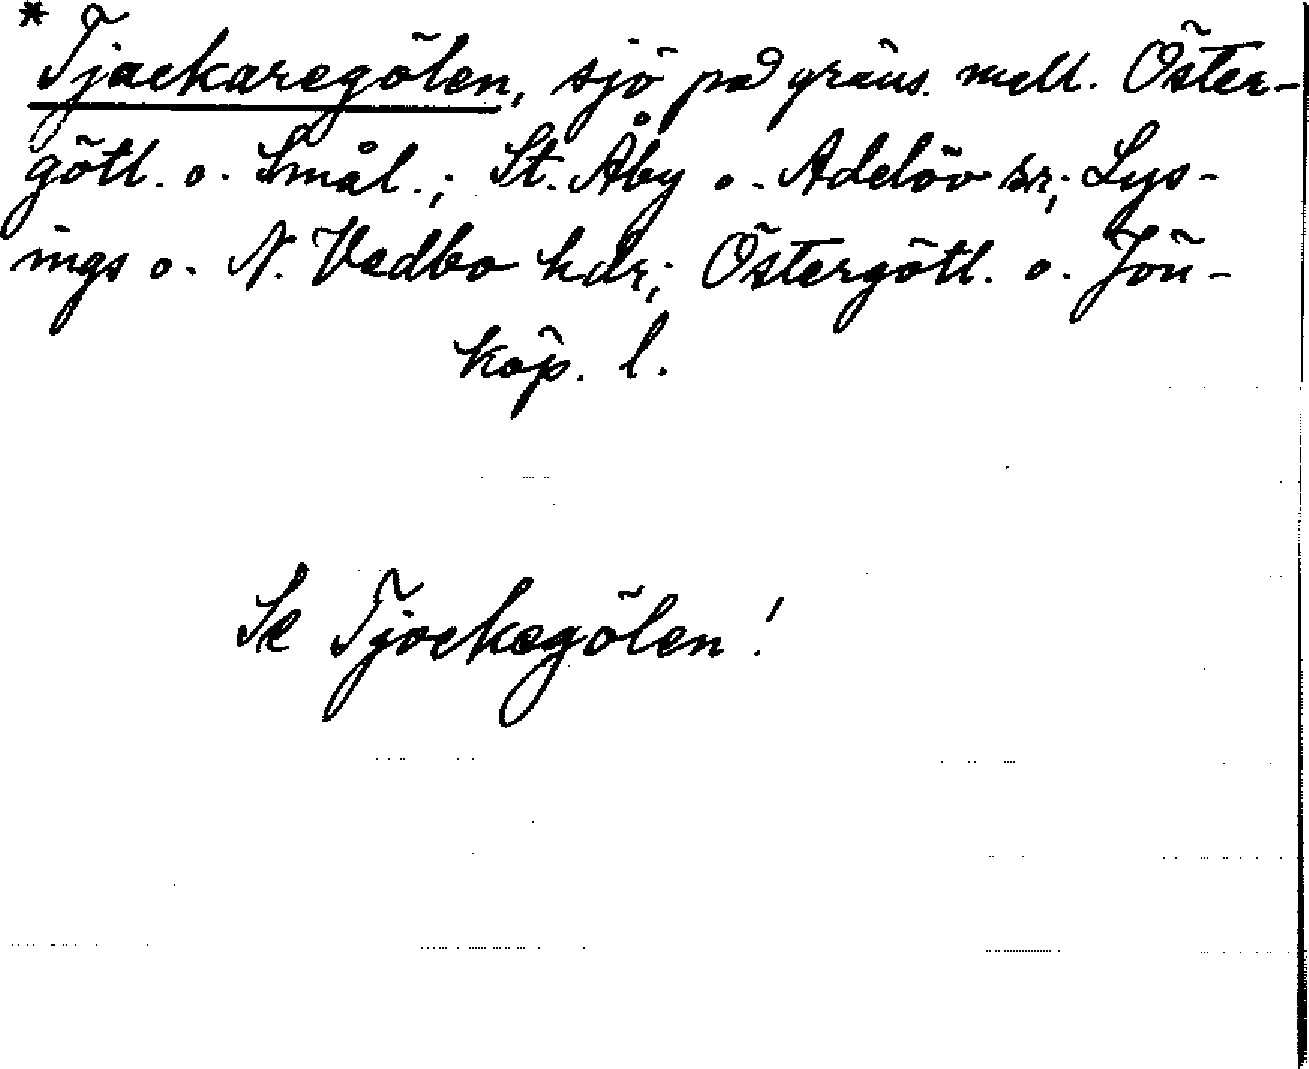 * Tjackaregölen, sjö på gräns. mell. Öster-
götl. o. Smål.; St. Åby o. Adelöv sr; Lys-
ings o. N. Vedbo hdr; Östergötl. o. Jön-
köp. l.
Se Tjockegölen!